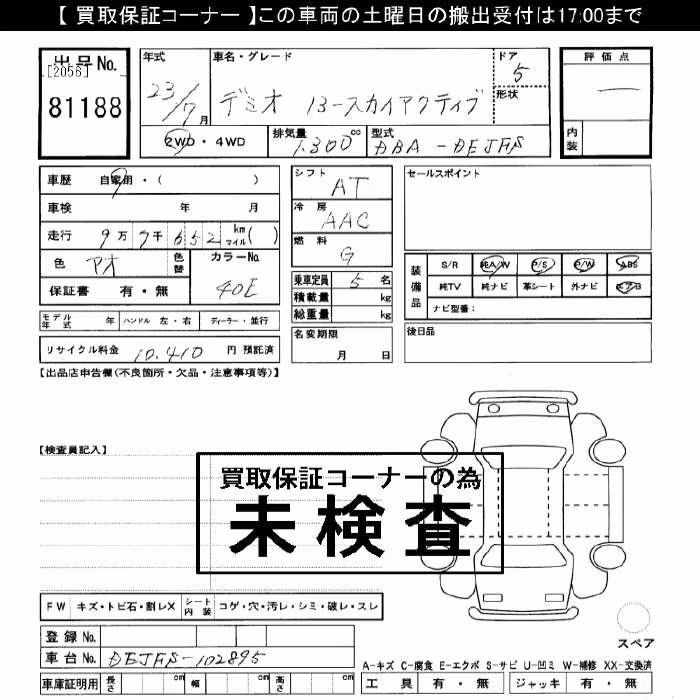 【 買取保証コーナー 】この車両の土曜日の搬出受付は17:00まで
出品No.
[2056]
81188
年式
23/7月
車名・グレード
デミオ 13-スカイアクティブ
ドア
5
形状
2WD・4WD
排気量
1.300cc
型式
DBA-DEJFS
評価点
内装
車歴 自家用・( )
車検 年 月
走行 9万7千652 km マイル( )
色 アオ
色替
カラーNo.
40E
保証書 有・無
シフト
AT
冷房
AAC
燃料
G
乗車定員 5名
積載量 kg
総重量 kg
セールスポイント
装備品
S/R 純A/W P/S P/W ABS
純TV 純ナビ 革シート 外ナビ エアB
ナビ型番:
モデル年式 年 ハンドル 左・右 ディーラー・並行
リサイクル料金 10.410 円 預託済
名変期限
月 日
後日品
【出品店申告欄(不良箇所・欠品・注意事項等)】
【検査員記入】
買取保証コーナーの為
未検査
FW キズ・トビ石・割レX シート内装 コゲ・穴・汚レ・シミ・破レ・スレ
登録No.
車台No. DEJFS-102895
車庫証明用 長さ cm 幅 cm 高さ cm
スペア
A-キズ C-腐食 E-エクボ S-サビ U-凹ミ W-補修 XX-交換済
工具 有・無 ジャッキ 有・無